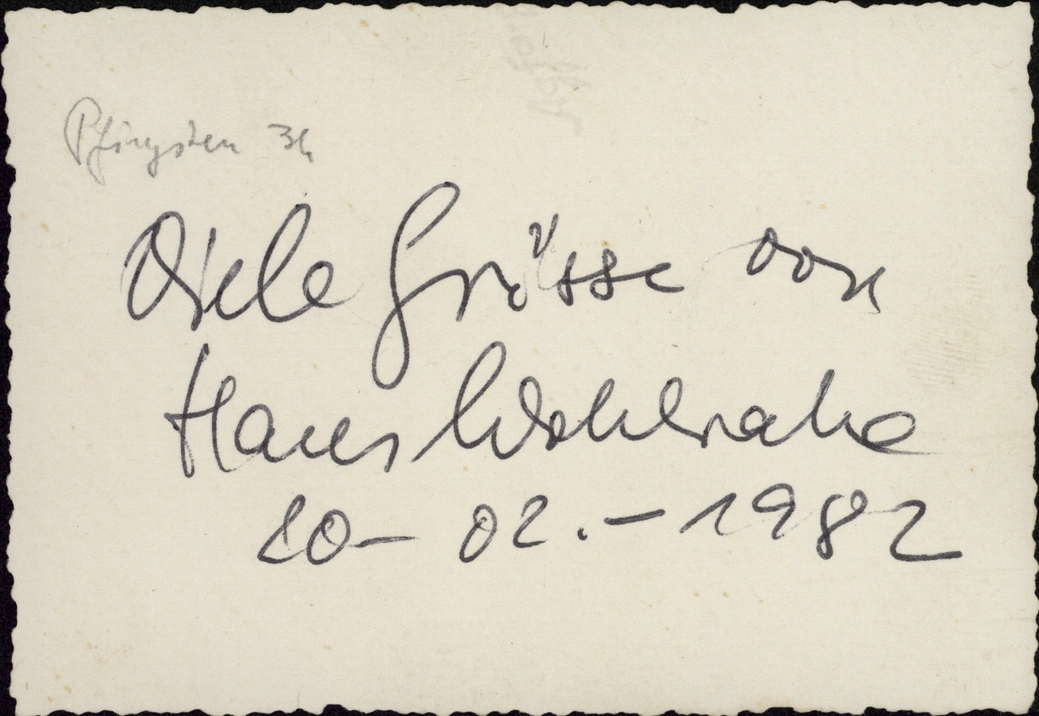 Pfingsten 34
Viele Grüsse von
Hans Wohlrabe
20-02.-1982